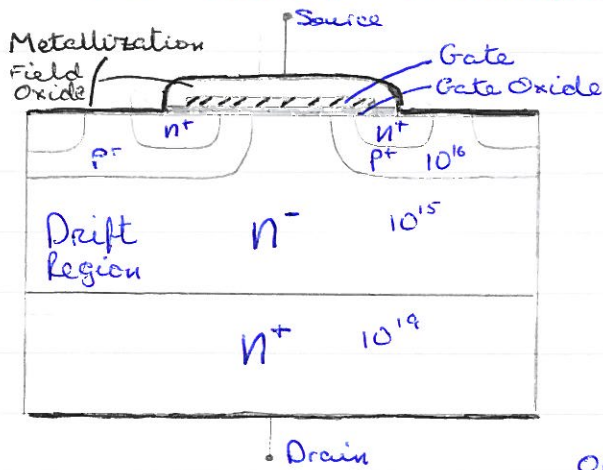 Source
Metallization
Field
Oxide
Gate
Gate Oxide
n⁺
n⁺
P⁺
P⁺ 10¹⁶
Drift
Region
n⁻
10¹⁵
n⁺
10¹⁹
Drain